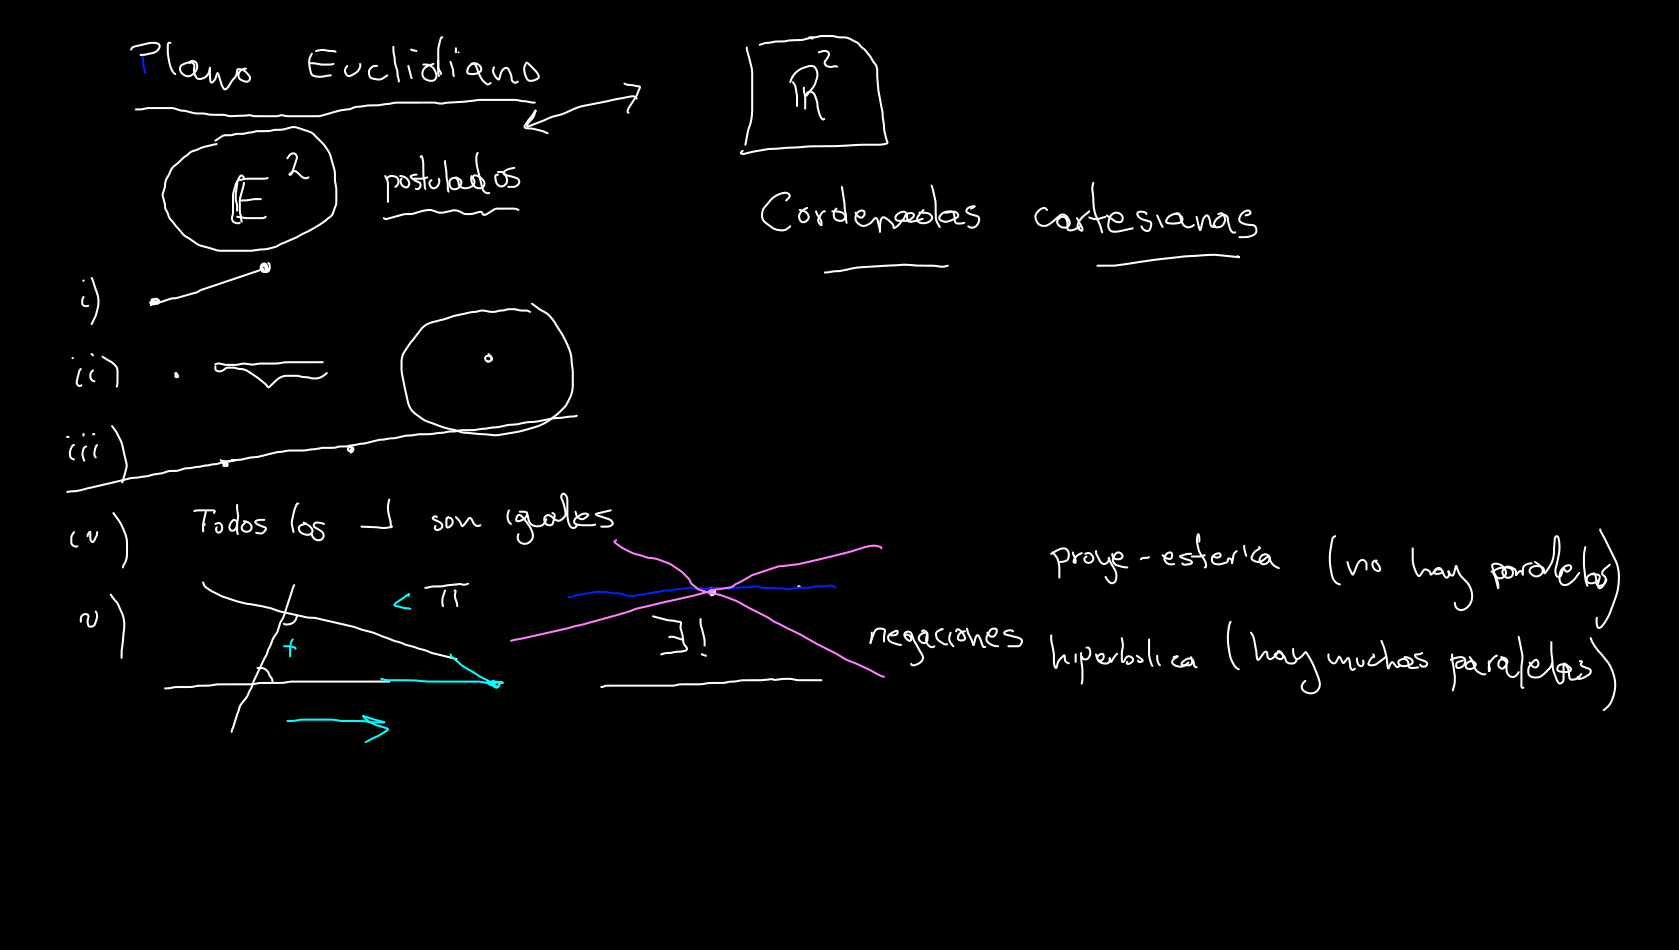 Plano Euclidiano
ℝ²
𝔼² postulados
Cordenadas cartesianas
i)
ii)
iii)
iv) Todos los ⅃ son iguales
v) < π
+
∃!
negaciones
proye-esferica (no hay paralelas)
hiperbolica (hay muchas paralelas)